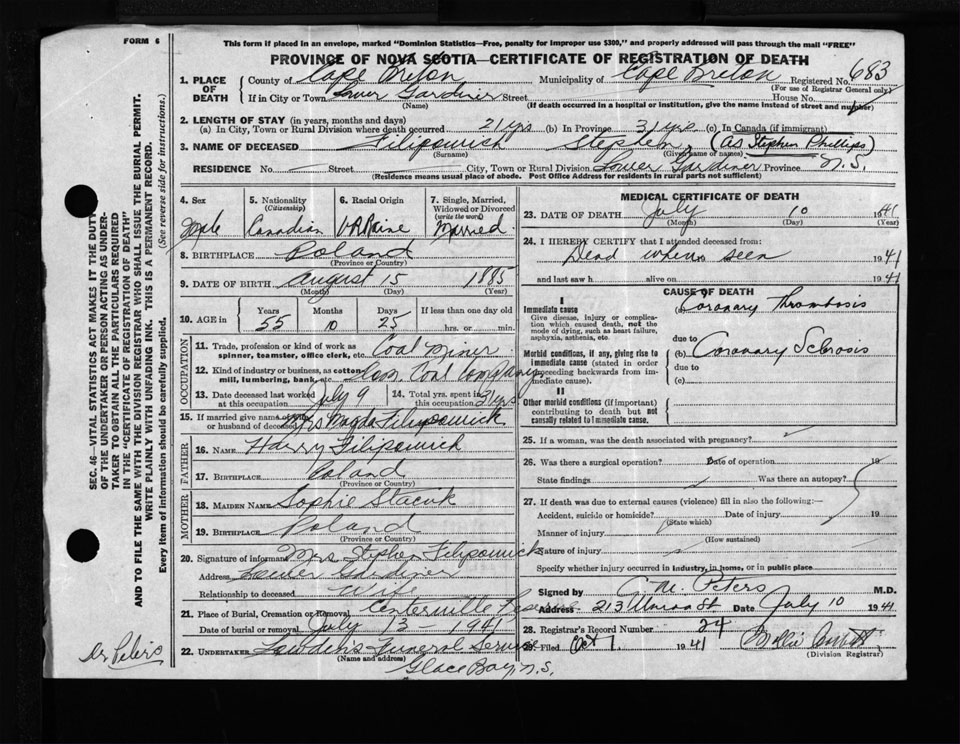 FORM 6
This form if placed in an envelope, marked "Dominion Statistics—Free, penalty for improper use $300," and properly addressed will pass through the mail "FREE"
PROVINCE OF NOVA SCOTIA—CERTIFICATE OF REGISTRATION OF DEATH
1. PLACE OF DEATH County of Cape Breton Municipality of Cape Breton Registered No. 683
(For use of Registrar General only)
If in City or Town Lower Gardiner Street House No.
(Name) (If death occurred in a hospital or institution, give the name instead of street and number)
2. LENGTH OF STAY (in years, months and days)
(a) In City, Town or Rural Division where death occurred 21 yrs (b) In Province 31 yrs (c) In Canada (if immigrant)
3. NAME OF DECEASED Filipowich Stephen (as Stephen Phillips)
(Surname) (Given name or names)
RESIDENCE No. Street City, Town or Rural Division Lower Gardiner Province N.S.
(Residence means usual place of abode. Post Office Address for residents in rural parts not sufficient)
4. Sex
Male
5. Nationality
(Citizenship)
Canadian
6. Racial Origin
7. Single, Married, Widowed or Divorced
(write the word)
Married
8. BIRTHPLACE Poland
(Province or Country)
9. DATE OF BIRTH August 15 1885
(Month) (Day) (Year)
10. AGE in Years Months Days If less than one day old
55 10 25 hrs. or min.
OCCUPATION
11. Trade, profession or kind of work as spinner, teamster, office clerk, etc. Coal Miner
12. Kind of industry or business, as cotton mill, lumbering, bank, etc. Dom. Coal Company
13. Date deceased last worked at this occupation July 9
14. Total yrs. spent in this occupation 31 yrs
15. If married give name of wife or husband of deceased Mrs Magda Filipowich
FATHER
16. NAME Harry Filipowich
17. BIRTHPLACE Poland
(Province or Country)
MOTHER
18. MAIDEN NAME Sophie
19. BIRTHPLACE Poland
(Province or Country)
20. Signature of informant Mrs Stephen Filipowich
Address Lower Gardiner
Relationship to deceased Wife
21. Place of Burial, Cremation or Removal Centerville
Date of burial or removal July 13 - 1941
22. UNDERTAKER Funeral Service
(Name and address)
Glace Bay, N.S.
MEDICAL CERTIFICATE OF DEATH
23. DATE OF DEATH July 10 1941
(Month) (Day) (Year)
24. I HEREBY CERTIFY that I attended deceased from:
Dead when seen 1941
and last saw h alive on 1941
CAUSE OF DEATH
I
Immediate cause
Give disease, injury or complication which caused death, not the mode of dying, such as heart failure, asphyxia, asthenia, etc.
(a) Coronary Thrombosis
due to
Morbid conditions, if any, giving rise to immediate cause (stated in order proceeding backwards from immediate cause).
(b) Coronary Sclerosis
due to
(c)
II
Other morbid conditions (if important) contributing to death but not causally related to immediate cause.
25. If a woman, was the death associated with pregnancy?
26. Was there a surgical operation? Date of operation 19
State findings Was there an autopsy?
27. If death was due to external causes (violence) fill in also the following:—
Accident, suicide or homicide? Date of injury 19
(State which)
Manner of injury
(How sustained)
Nature of injury
Specify whether injury occurred in industry, in home, or in public place
Signed by M. Peters M.D.
Address 213 Union St Date July 10 1941
28. Registrar's Record Number 24
29. Filed Oct 7. 1941
(Division Registrar)
SEC. 46—VITAL STATISTICS ACT MAKES IT THE DUTY
OF THE UNDERTAKER OR PERSON ACTING AS UNDER-
TAKER TO OBTAIN ALL THE PARTICULARS REQUIRED
IN THE "CERTIFICATE OF REGISTRATION OF DEATH"
AND TO FILE THE SAME WITH THE DIVISION REGISTRAR WHO SHALL ISSUE THE BURIAL PERMIT.
WRITE PLAINLY WITH UNFADING INK. THIS IS A PERMANENT RECORD.
Every item of information should be carefully supplied. (See reverse side for instructions.)
Dr Peters